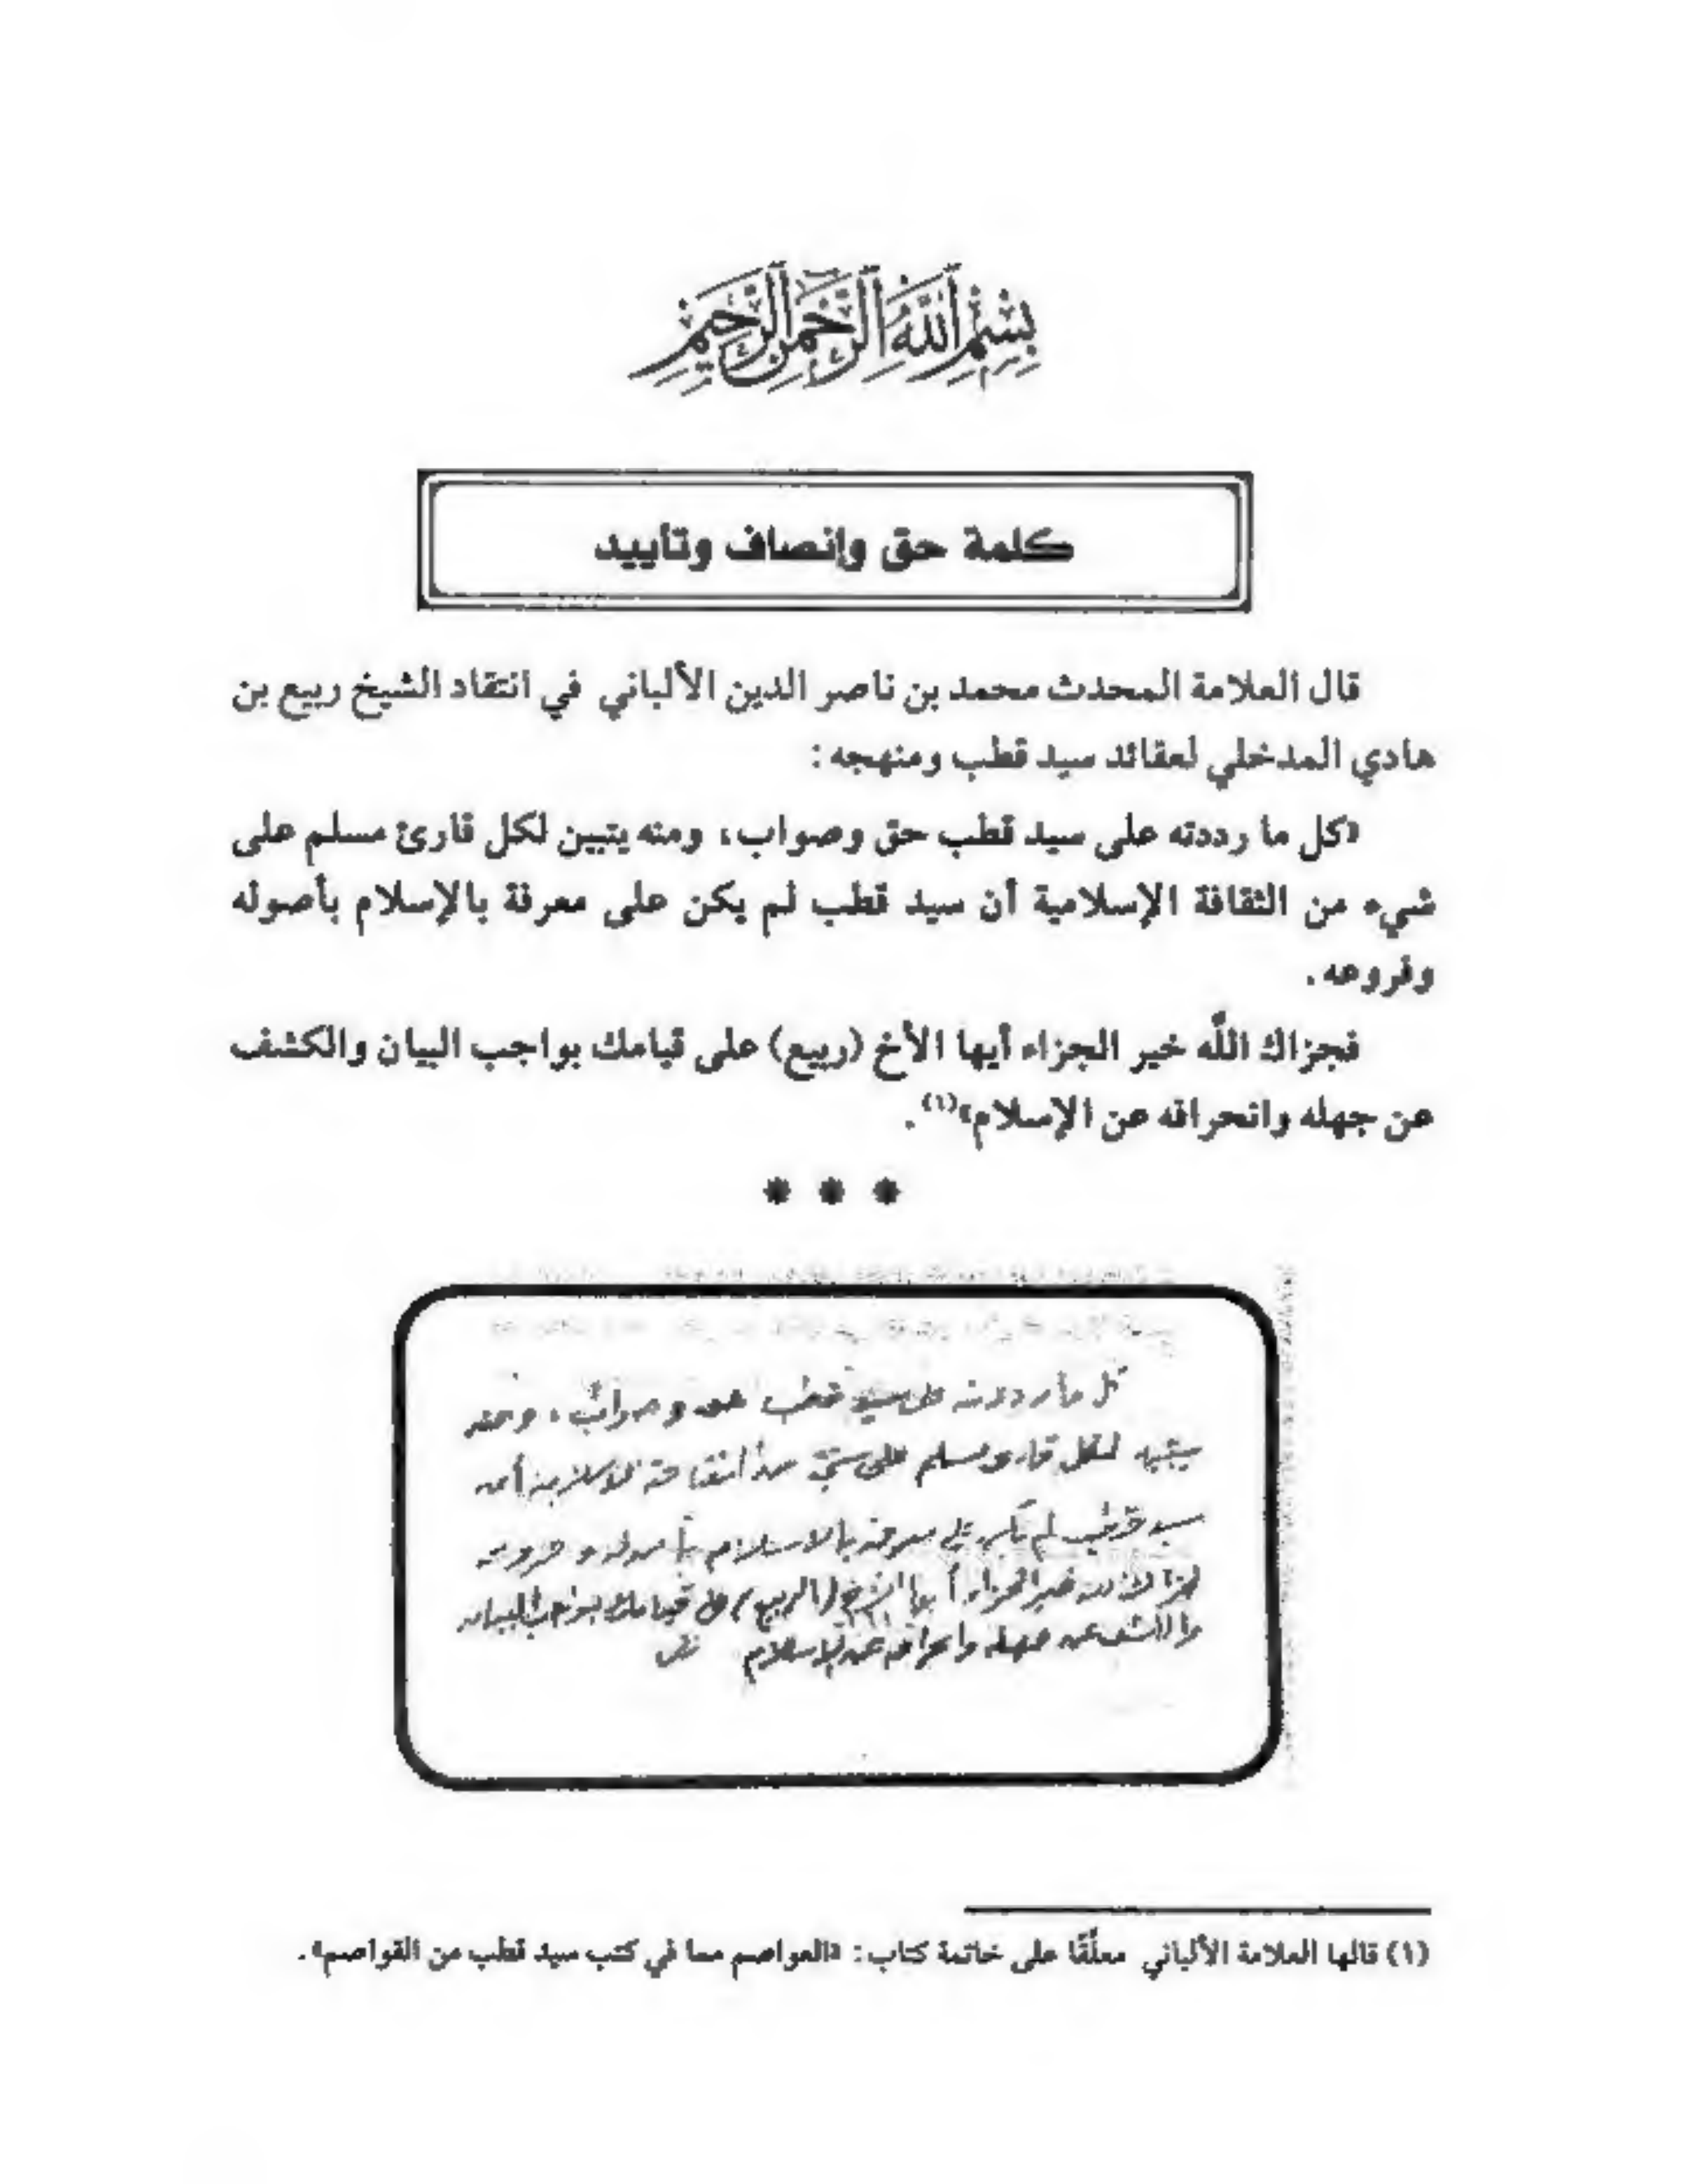 بِسْمِ اللَّهِ الرَّحْمَنِ الرَّحِيمِ
كلمة حق وإنصاف وتأييد
قال العلامة المحدث محمد بن ناصر الدين الألباني في انتقاد الشيخ ربيع بن
هادي المدخلي لعقائد سيد قطب ومنهجه :
«كل ما رددته على سيد قطب حق وصواب، ومنه يتبين لكل قارئ مسلم على
شيء من الثقافة الإسلامية أن سيد قطب لم يكن على معرفة بالإسلام بأصوله
وفروعه .
فجزاك اللَّه خير الجزاء أيها الأخ (ربيع) على قيامك بواجب البيان والكشف
عن جهله وانحرافه عن الإسلام»(١) .
* * *
كل ما رددته على سيد قطب حق وصواب ، ومنه
يتبين لكل قارئ مسلم على شيء من الثقافة الإسلامية أن
سيد قطب لم يكن على معرفة بالاسلام بأصوله وفروعه
خير الجزاء أيها (الربيع) على قيامك بواجب البيان
والكشف عن جهله وانحرافه عن الاسلام
(١) قالها العلامة الألباني معلِّقًا على خاتمة كتاب : «العواصم مما في كتب سيد قطب من القواصم» .